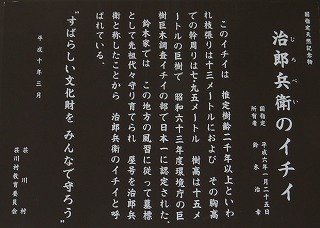 国指定天然記念物
じろべい
治郎兵衛のイチイ
国指定 平成六年一月二十五日
所有者 鈴木治幸
このイチイは 推定樹齢二千年以上といわ
れ枝張りは十三メートルにおよび その胸高
での幹周りは七・九五メートル 樹高は十五メ
ートルの巨樹で 昭和六十三年度環境庁の巨
樹巨木調査イチイの部で日本一に認定された。
鈴木家では この地方の風習に従って墓標
として先祖代々守り育てられ 屋号を治郎兵
衛と称したことから 治郎兵衛のイチイと呼
ばれている。
“すばらしい文化財を みんなで守ろう”
平成十年三月
荘川村
荘川村教育委員会